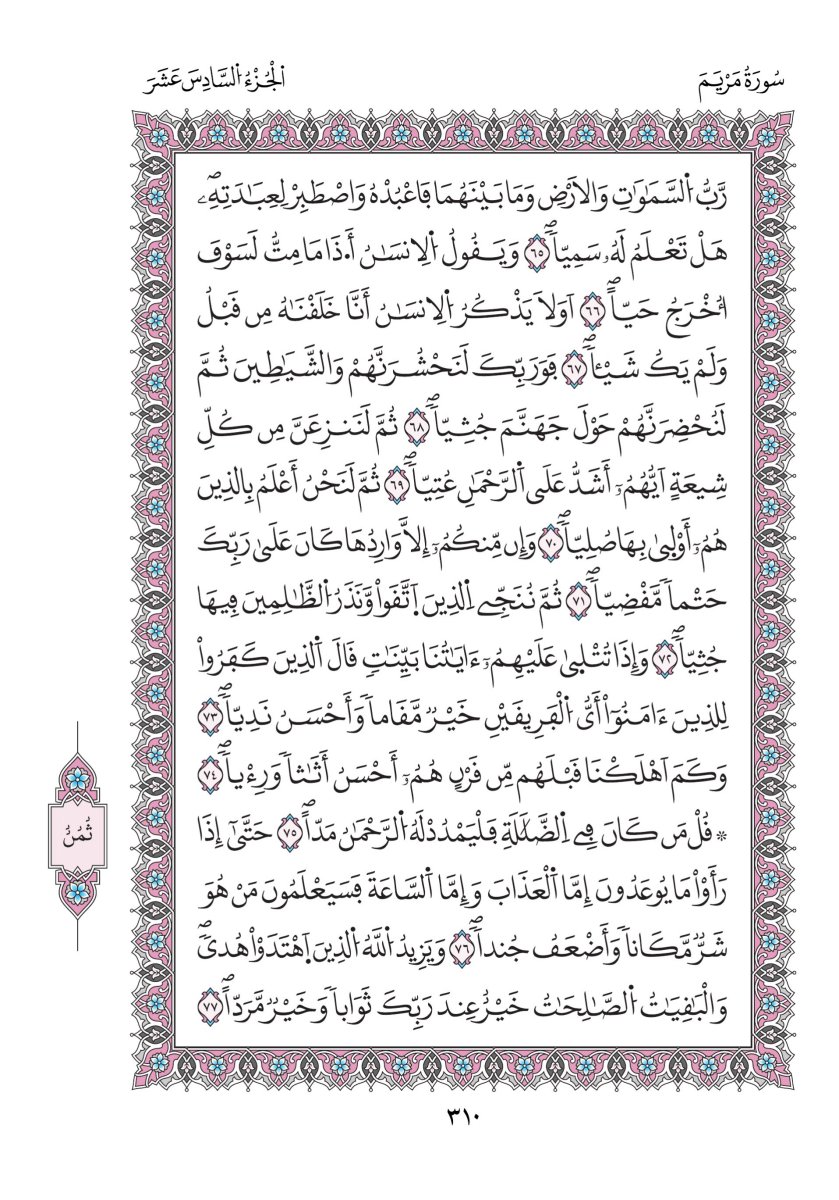 سُورَةُ مَرْيَمَ
اَلْجُزْءُ اَلسَّادِسَ عَشَرَ
رَّبُّ اُ۬لسَّمَٰوَٰتِ وَالَارْضِ وَمَا بَيْنَهُمَا فَاعْبُدْهُ وَاصْطَبِرْ لِعِبَٰدَتِهِۦۖ
هَلْ تَعْلَمُ لَهُۥ سَمِيّاٗۖ ٦٥ وَيَقُولُ اُ۬لِانسَٰنُ أَ۟ذَا مَا مِتُّ لَسَوْفَ
أُخْرَجُ حَيّاًۖ ٦٦ اَوَلَا يَذْكُرُ اُ۬لِانسَٰنُ أَنَّا خَلَقْنَٰهُ مِن قَبْلُ
وَلَمْ يَكُ شَيْـٔاٗۖ ٦٧ فَوَرَبِّكَ لَنَحْشُرَنَّهُمْ وَالشَّيَٰطِينَ ثُمَّ
لَنُحْضِرَنَّهُمْ حَوْلَ جَهَنَّمَ جُثِيّاٗۖ ٦٨ ثُمَّ لَنَنزِعَنَّ مِن كُلِّ
شِيعَةٍ اَيُّهُمُۥٓ أَشَدُّ عَلَى اَ۬لرَّحْمَٰنِ عُتِيّاٗۖ ٦٩ ثُمَّ لَنَحْنُ أَعْلَمُ بِالذِينَ
هُمُۥٓ أَوْلَىٰ بِهَا صُلِيّاٗۖ ٧٠ وَإِن مِّنكُمُۥٓ إِلَّا وَارِدُهَا كَانَ عَلَىٰ رَبِّكَ
حَتْماٗ مَّقْضِيّاٗۖ ٧١ ثُمَّ نُنَجِّے اِ۬لذِينَ اَ۪تَّقَواْ وَّنَذَرُ اُ۬لظَّٰلِمِينَ فِيهَا
جُثِيّاٗۖ ٧٢ وَإِذَا تُتْلَىٰ عَلَيْهِمُۥٓ ءَايَٰتُنَا بَيِّنَٰتٖ قَالَ اَ۬لذِينَ كَفَرُواْ
لِلذِينَ ءَامَنُوٓاْ أَيُّ اُ۬لْفَرِيقَيْنِ خَيْرٞ مَّقَاماٗ وَأَحْسَنُ نَدِيّاٗۖ ٧٣
وَكَمَ اَهْلَكْنَا قَبْلَهُم مِّن قَرْنٍ هُمُۥٓ أَحْسَنُ أَثَٰثاٗ وَرِءْياٗۖ ٧٤
۞ قُلْ مَن كَانَ فِے اِ۬لضَّلَٰلَةِ فَلْيَمْدُدْ لَهُ اُ۬لرَّحْمَٰنُ مَدّاًۖ ٧٥ حَتَّىٰٓ إِذَا
رَأَوْاْ مَا يُوعَدُونَ إِمَّا اَ۬لْعَذَابَ وَإِمَّا اَ۬لسَّاعَةَ فَسَيَعْلَمُونَ مَنْ هُوَ
شَرّٞ مَّكَاناٗ وَأَضْعَفُ جُنداٗۖ ٧٦ وَيَزِيدُ اُ۬للَّهُ اُ۬لذِينَ اَ۪هْتَدَوْاْ هُدىٗۖ
وَالْبَٰقِيَٰتُ اُ۬لصَّٰلِحَٰتُ خَيْرٌ عِندَ رَبِّكَ ثَوَاباٗ وَخَيْرٞ مَّرَدّاًۖ ٧٧
ثُمُنُ
٣١٠